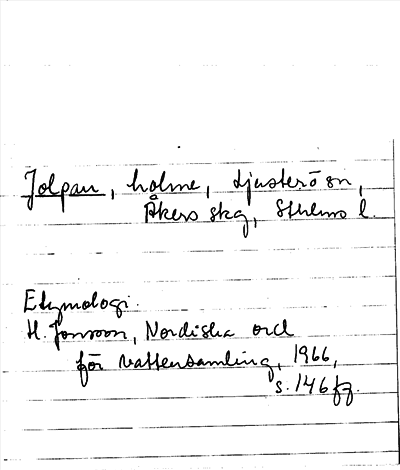 Jolpan, holme, Djusterö sn,
Åkers skg, Sthlms l.
Etymologi.
H. Jonsson, Nordiska ord
för vattensamling, 1966,
s. 146 fg.